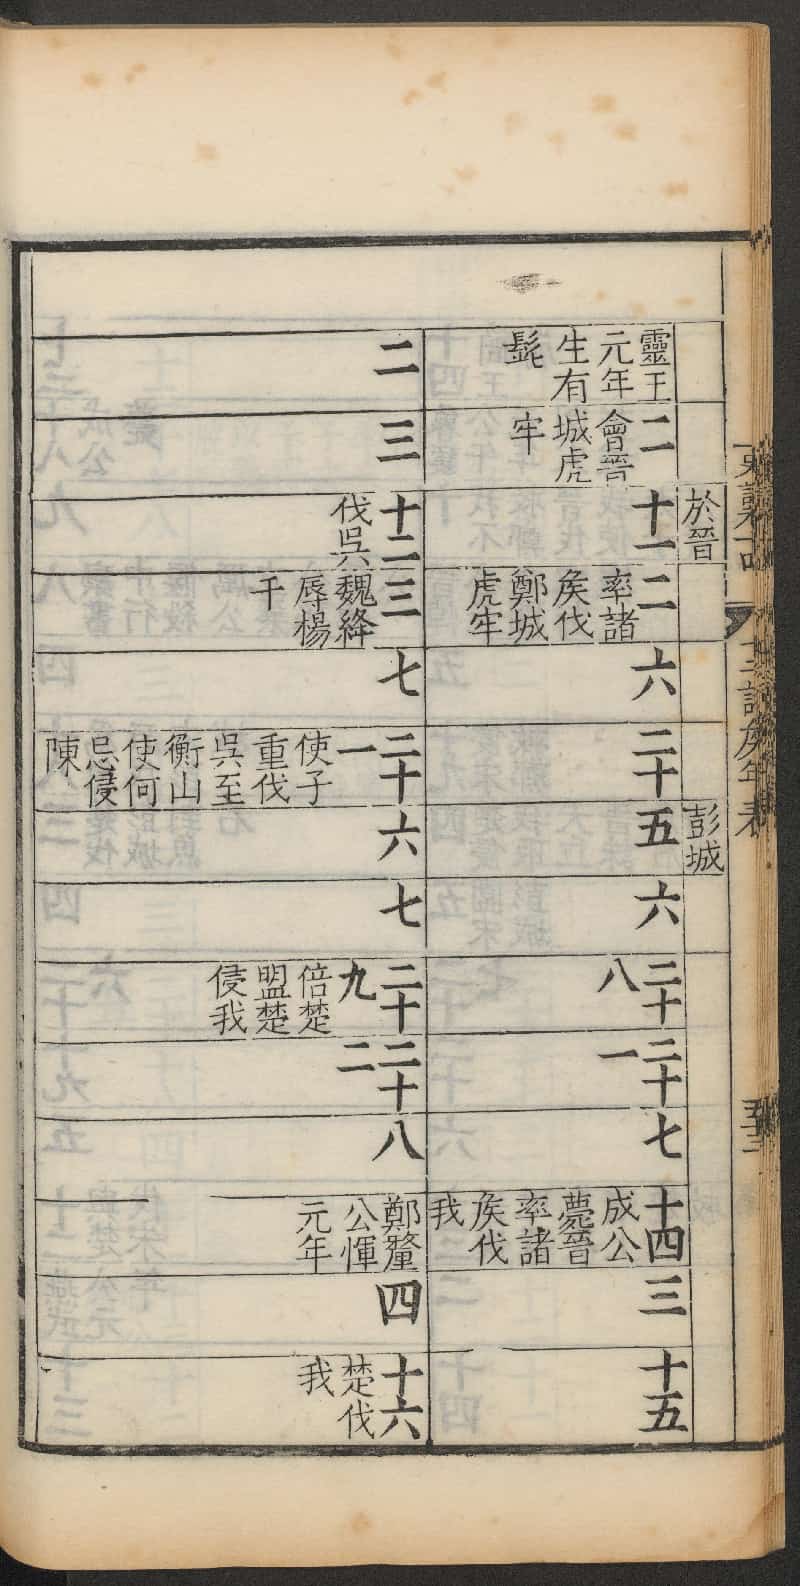 十二諸侯年表
於晉
彭城
靈王
元年
生有
髭
二
會晉
城虎
牢
十一
二
率諸
侯伐
鄭城
虎牢
六
二十
五
六
二十
八
二十
一
七
十四
成公
薨晉
率諸
侯伐
我
三
十五
二
三
十二
伐吳
三
魏絳
辱楊
干
七
二十
一
使子
重伐
吳至
衡山
使何
忌侵
陳
六
七
二十
九
倍楚
盟楚
侵我
二十
二
八
鄭釐
公惲
元年
四
十六
楚伐
我